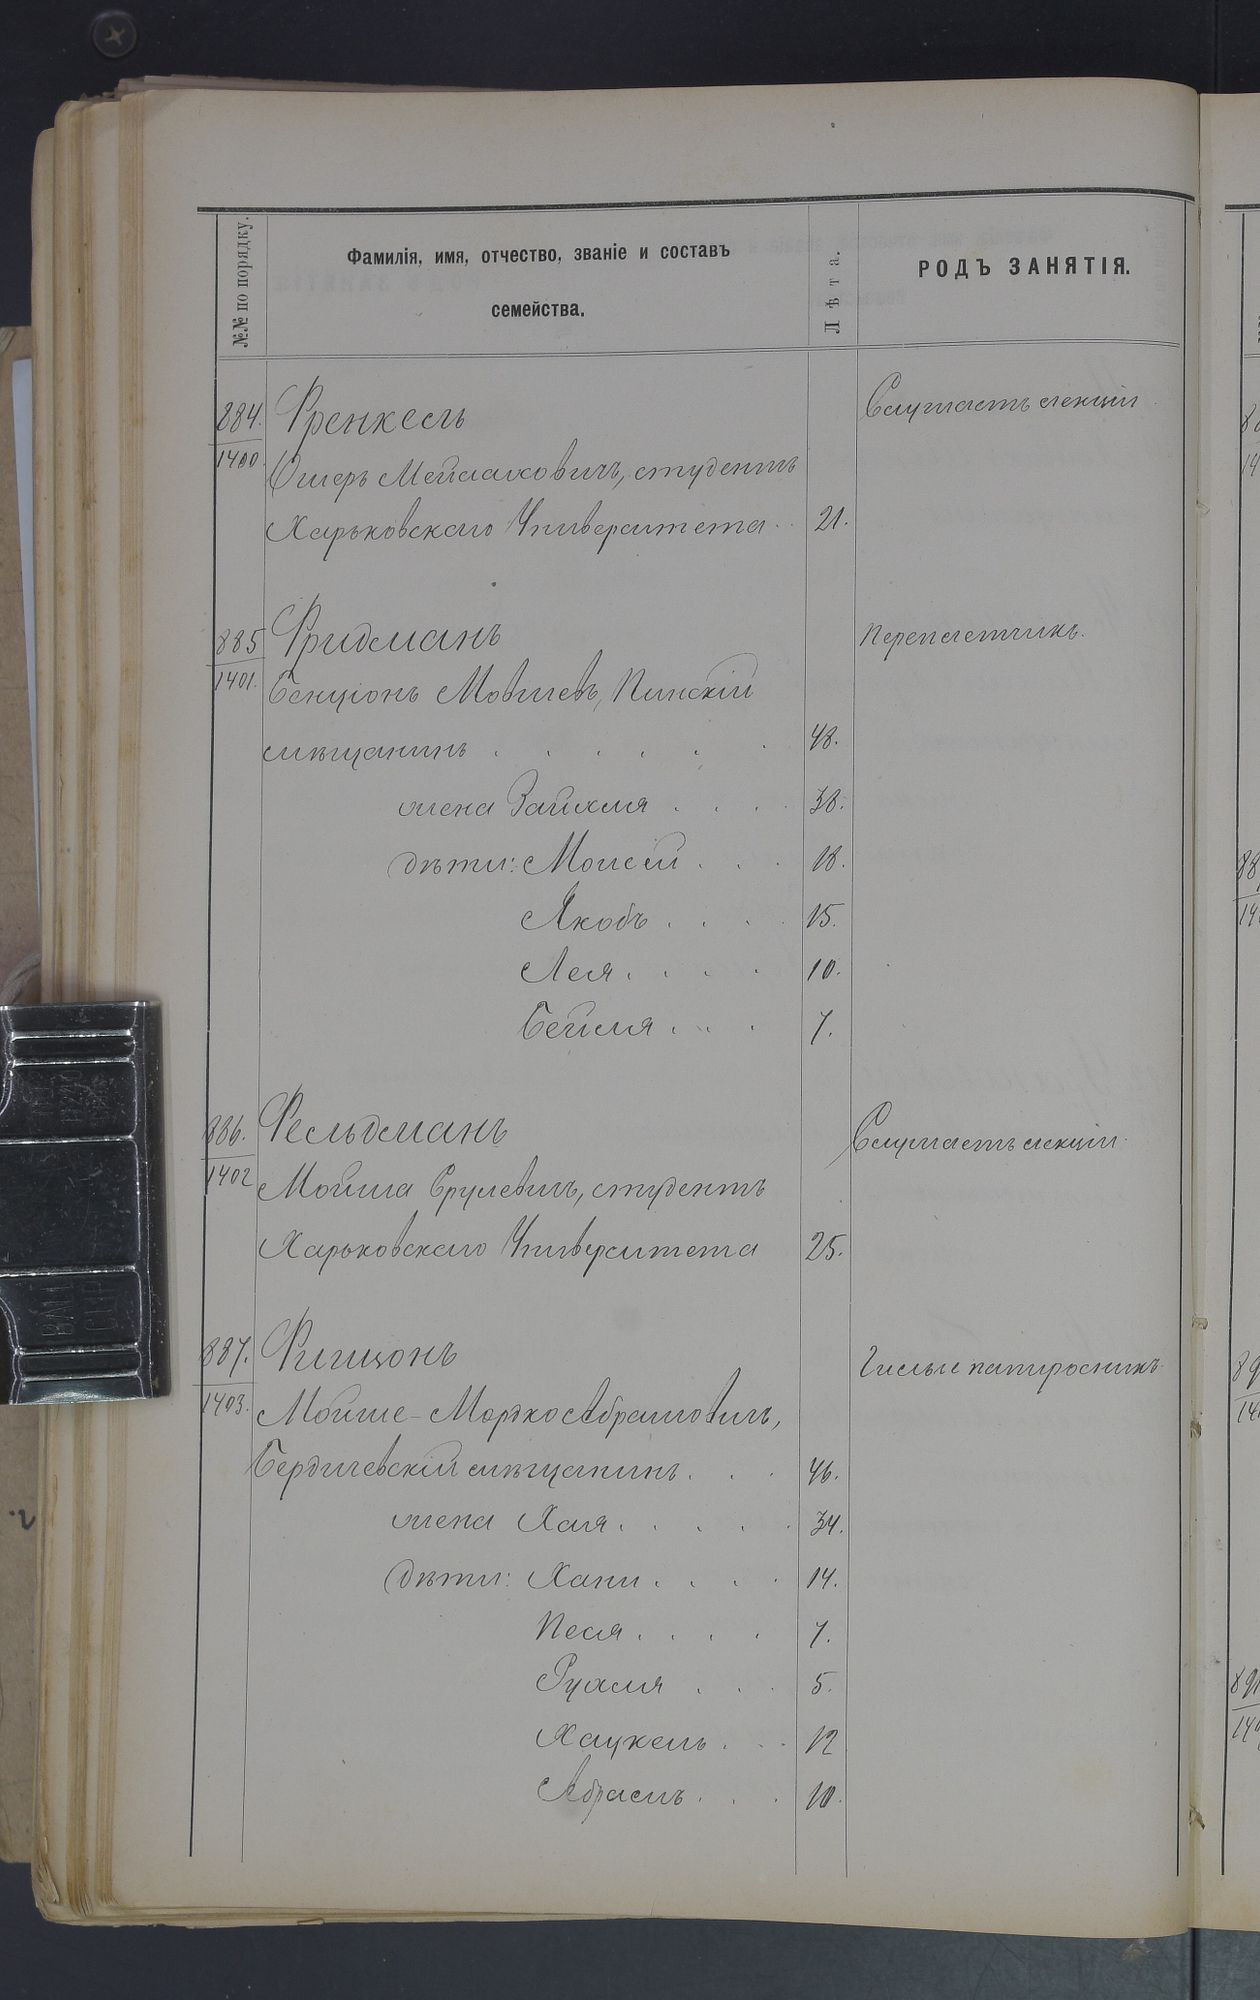 №№ по порядку.
Фамилія, имя, отчество, званіе и составъ
семейства.
Лѣта.
РОДЪ ЗАНЯТІЯ.
884. Френкель Слушаетъ лекціи
1400. Ошеръ Мейлаховичъ, студентъ
Харьковскаго Университета . . 21.
885 Фридманъ Переплетчикъ.
1401. Бенціонъ Мовшевъ, Пинскій
мѣщанинъ . . . . . . 48.
жена Зайхля . . . . 38.
дѣти: Моисей . . . 18.
Якобъ . . . . 15.
Лея . . . . 10.
Бейля . . . 7.
886. Фельдманъ Слушаетъ лекціи.
1402 Мойша Срулевичъ, студентъ
Харьковскаго Университета 25.
887. Фишзонъ Гильзы папиросникъ
1403. Мойше-Мордко Абрамовичъ,
Бердичевскій мѣщанинъ . . . 46.
жена Хая . . . . . 34.
дѣти: Хани . . . . 14.
Песя . . . . 7.
Рухля . . . 5.
Хацкель . . . 12
Абрамъ . . . 10.